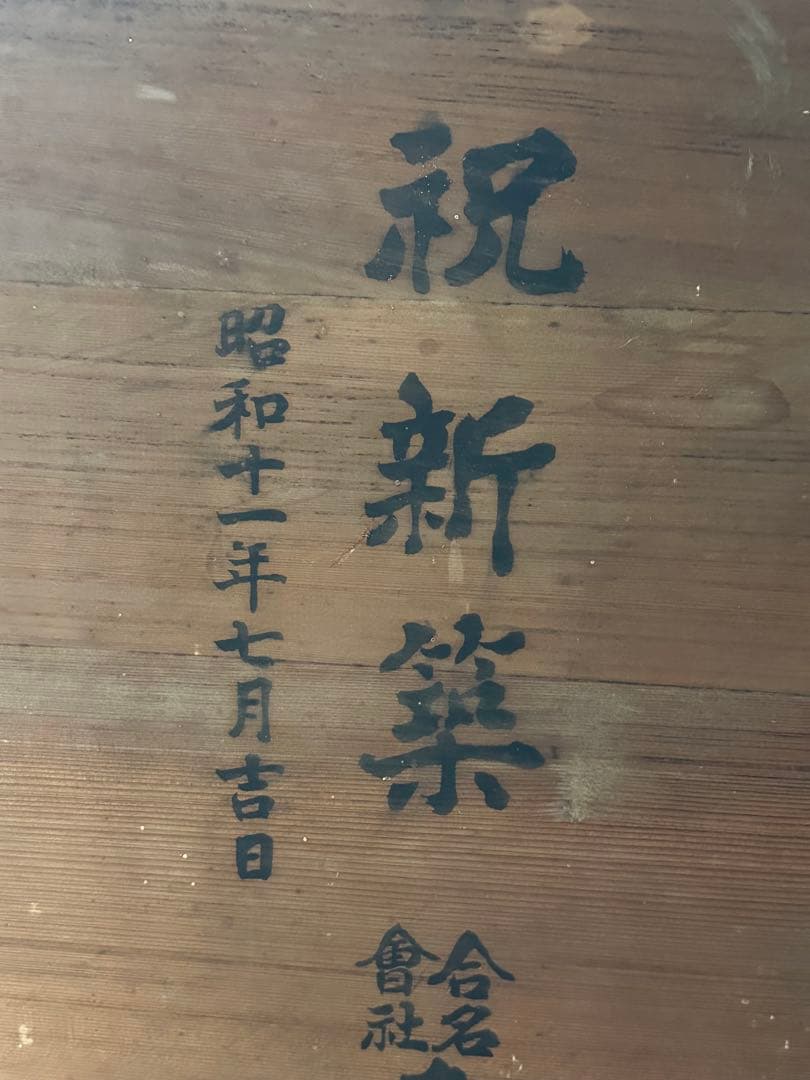 祝新築
合名
會社
昭和十一年七月吉日